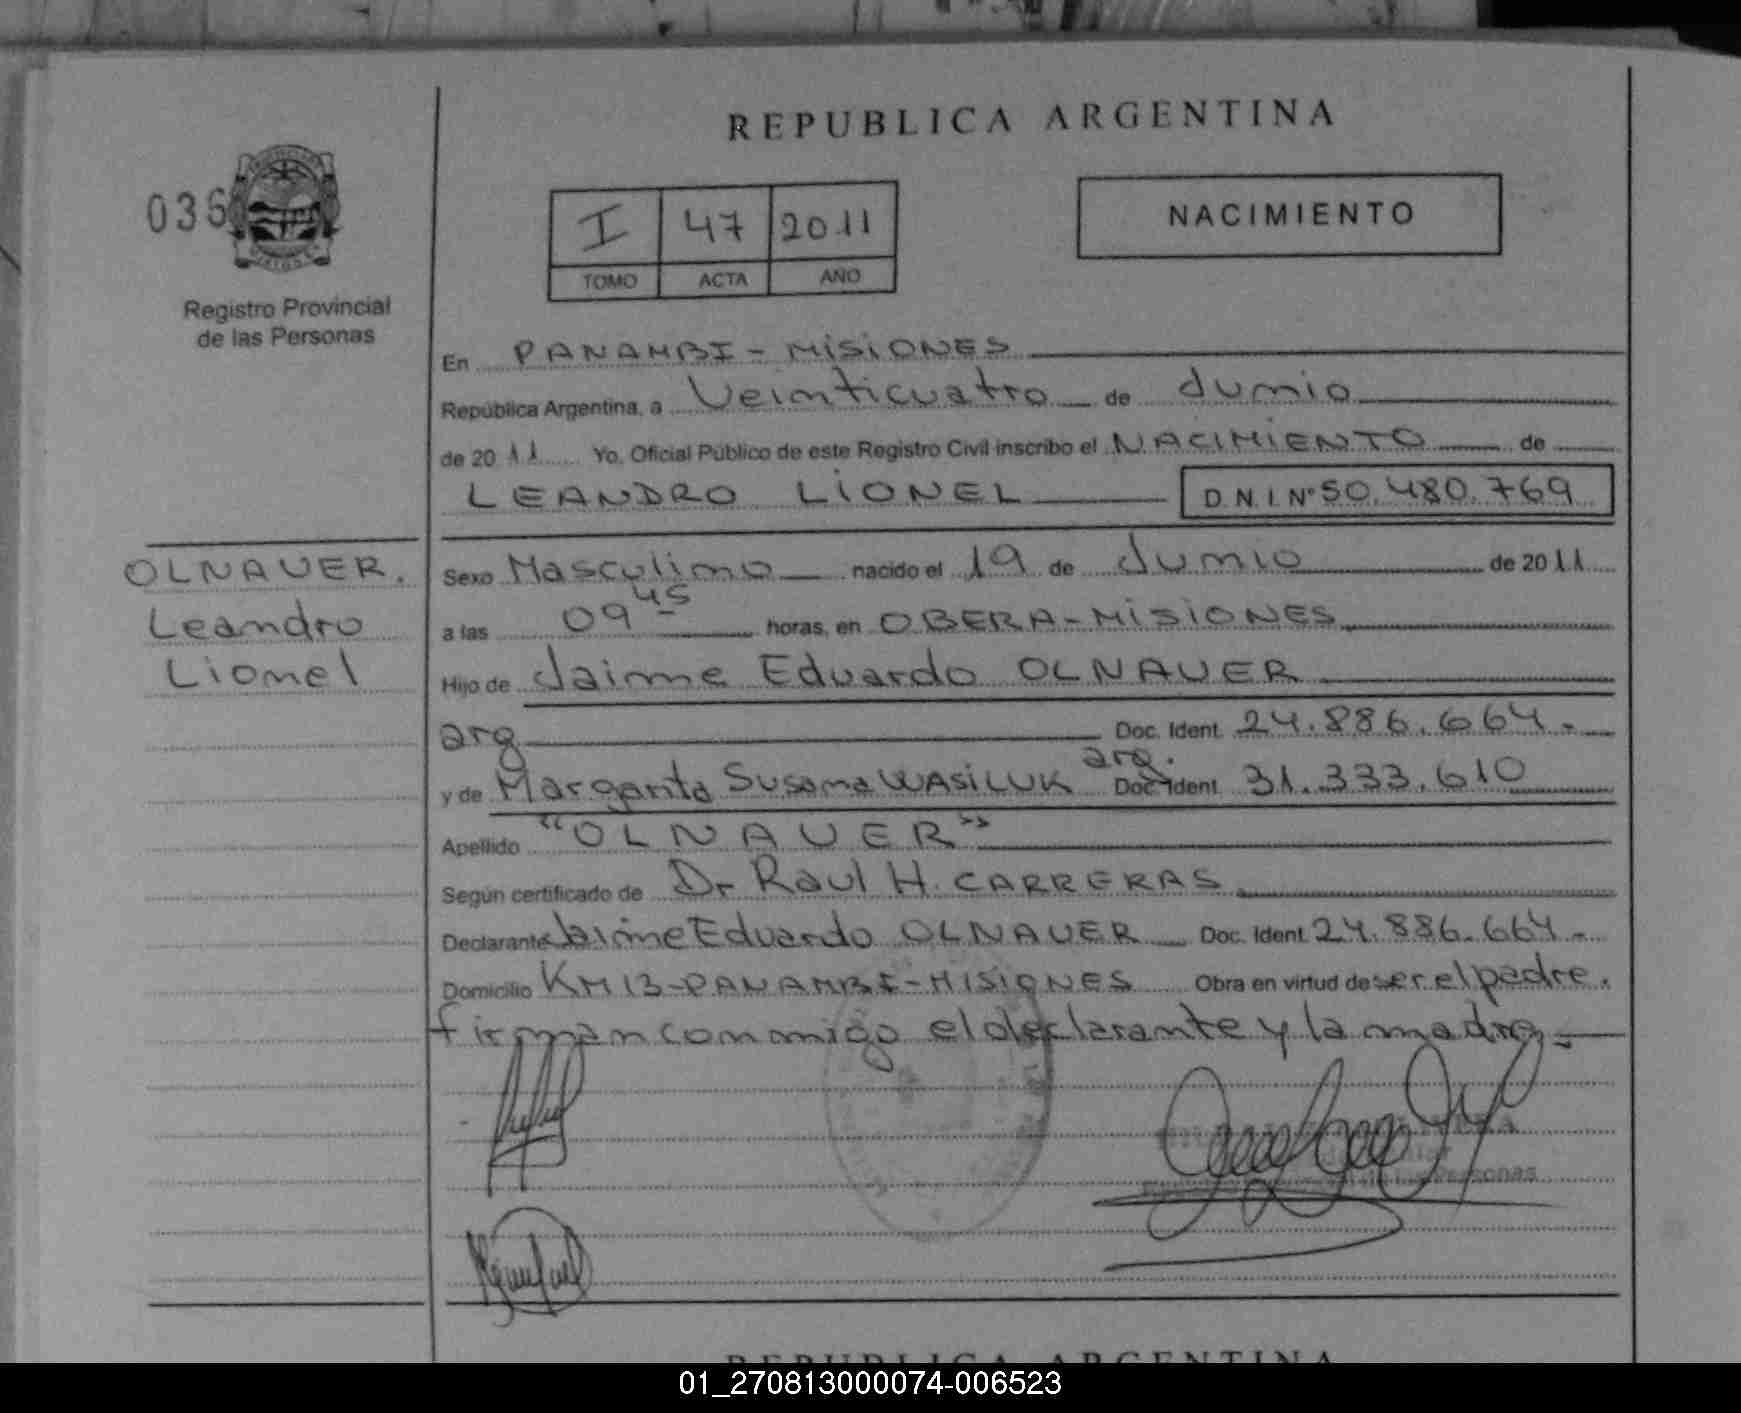 REPUBLICA ARGENTINA
036
I 47 2011
TOMO ACTA AÑO
NACIMIENTO
Registro Provincial
de las Personas
En PANAMBI - MISIONES
República Argentina, a Veinticuatro de Junio
de 20 11 Yo, Oficial Público de este Registro Civil inscribo el NACIMIENTO de
LEANDRO LIONEL D.N.I. Nº 50.480.769
OLNAUER.
Leandro
Lionel
Sexo Masculino nacido el 19 de Junio de 20 11
a las 09 45 horas, en OBERA - MISIONES
Hijo de Jaime Eduardo OLNAUER
arg Doc. Ident. 24.886.664.-
y de Margarita Susana WASILUK arg. Doc. Ident. 31.333.610
Apellido "OLNAUER"
Según certificado de Dr Raul H. CARRERAS
Declarante Jaime Eduardo OLNAUER Doc. Ident. 24.886.664.-
Domicilio KM 13 - PANAMBI - MISIONES Obra en virtud de ser el padre.
firman conmigo el declarante y la madre.-
Personas
REPUBLICA ARGENTINA
01_270813000074-006523